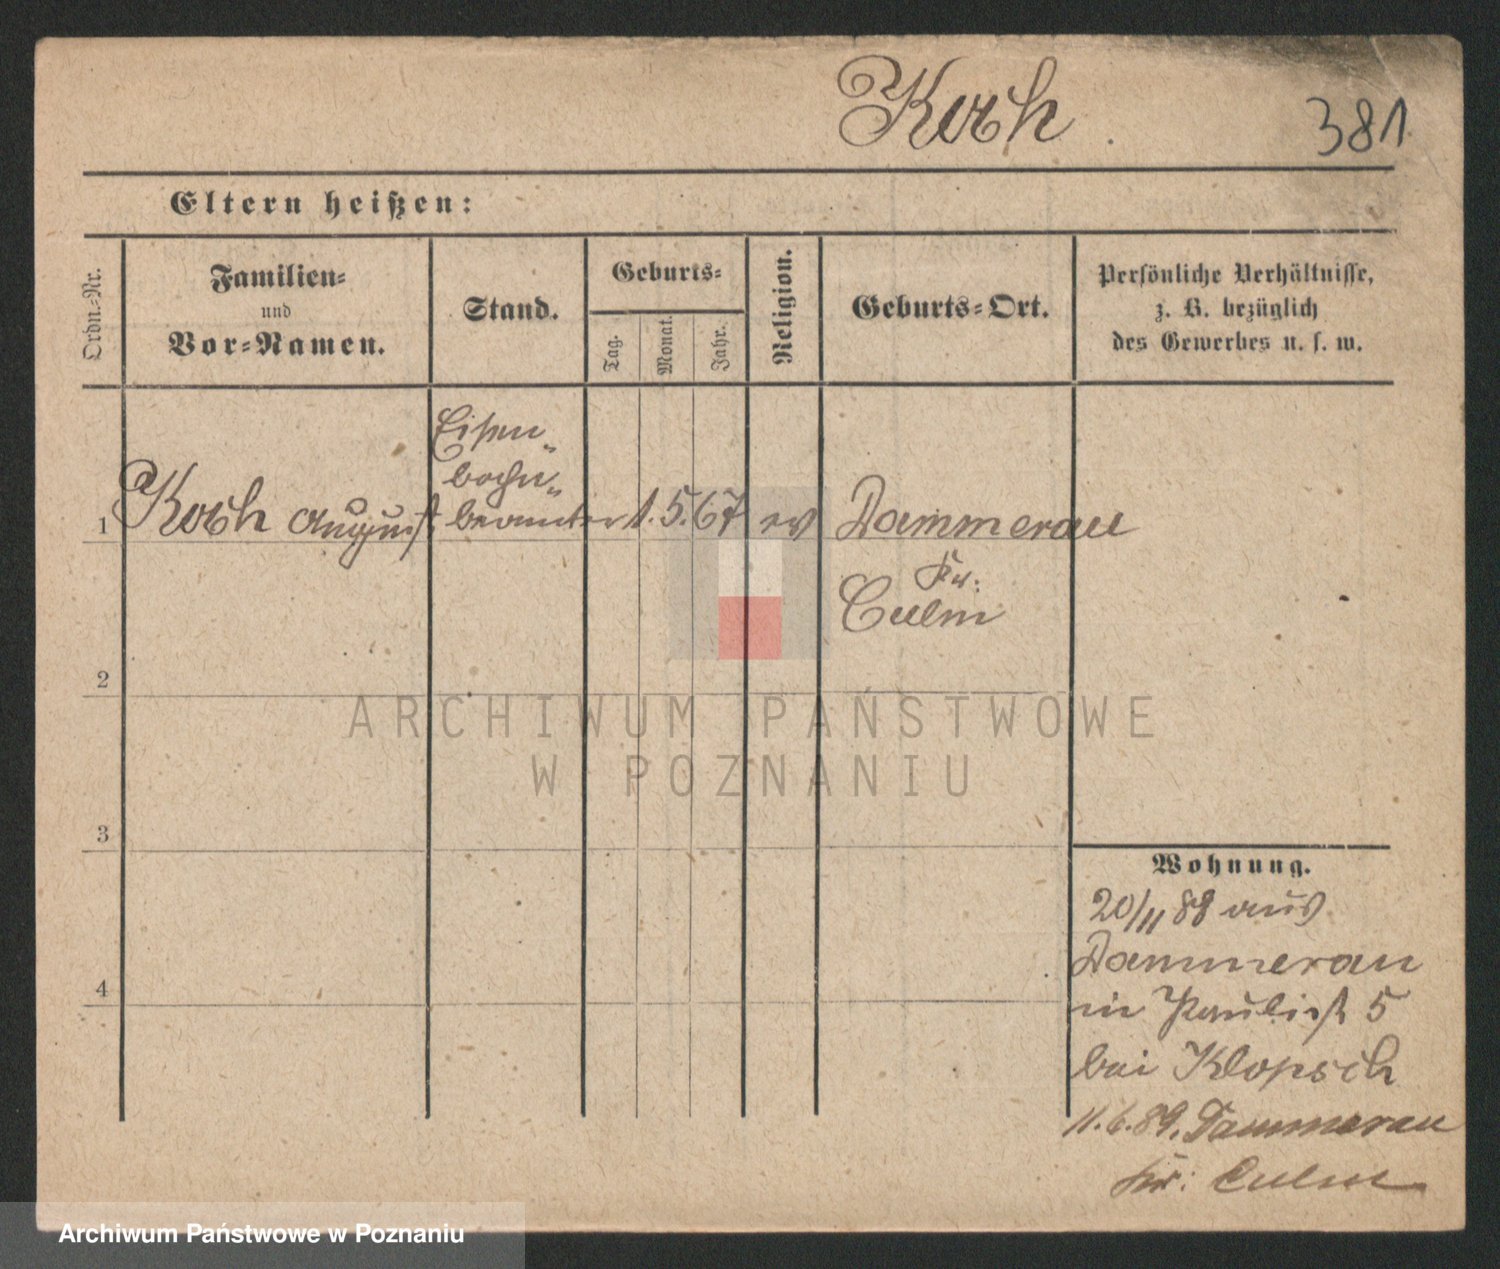 Koch
381
Eltern heißen:
Ordn.-Nr.
Familien-
und
Vor-Namen.
Stand.
Geburts-
Tag.
Monat.
Jahr.
Religion.
Geburts-Ort.
Persönliche Verhältnisse,
z. B. bezüglich
des Gewerbes u. s. w.
1
Koch August
Eisen-
bahn-
beamter
1. 5. 67
ev
Dammerau
Kr:
Culm
2
3
4
Wohnung.
20/11 88 aus
Dammerau
in Paulist 5
bei Klopsch
11.6.89. Dammerau
Kr: Culm
ARCHIWUM PAŃSTWOWE
W POZNANIU
Archiwum Państwowe w Poznaniu